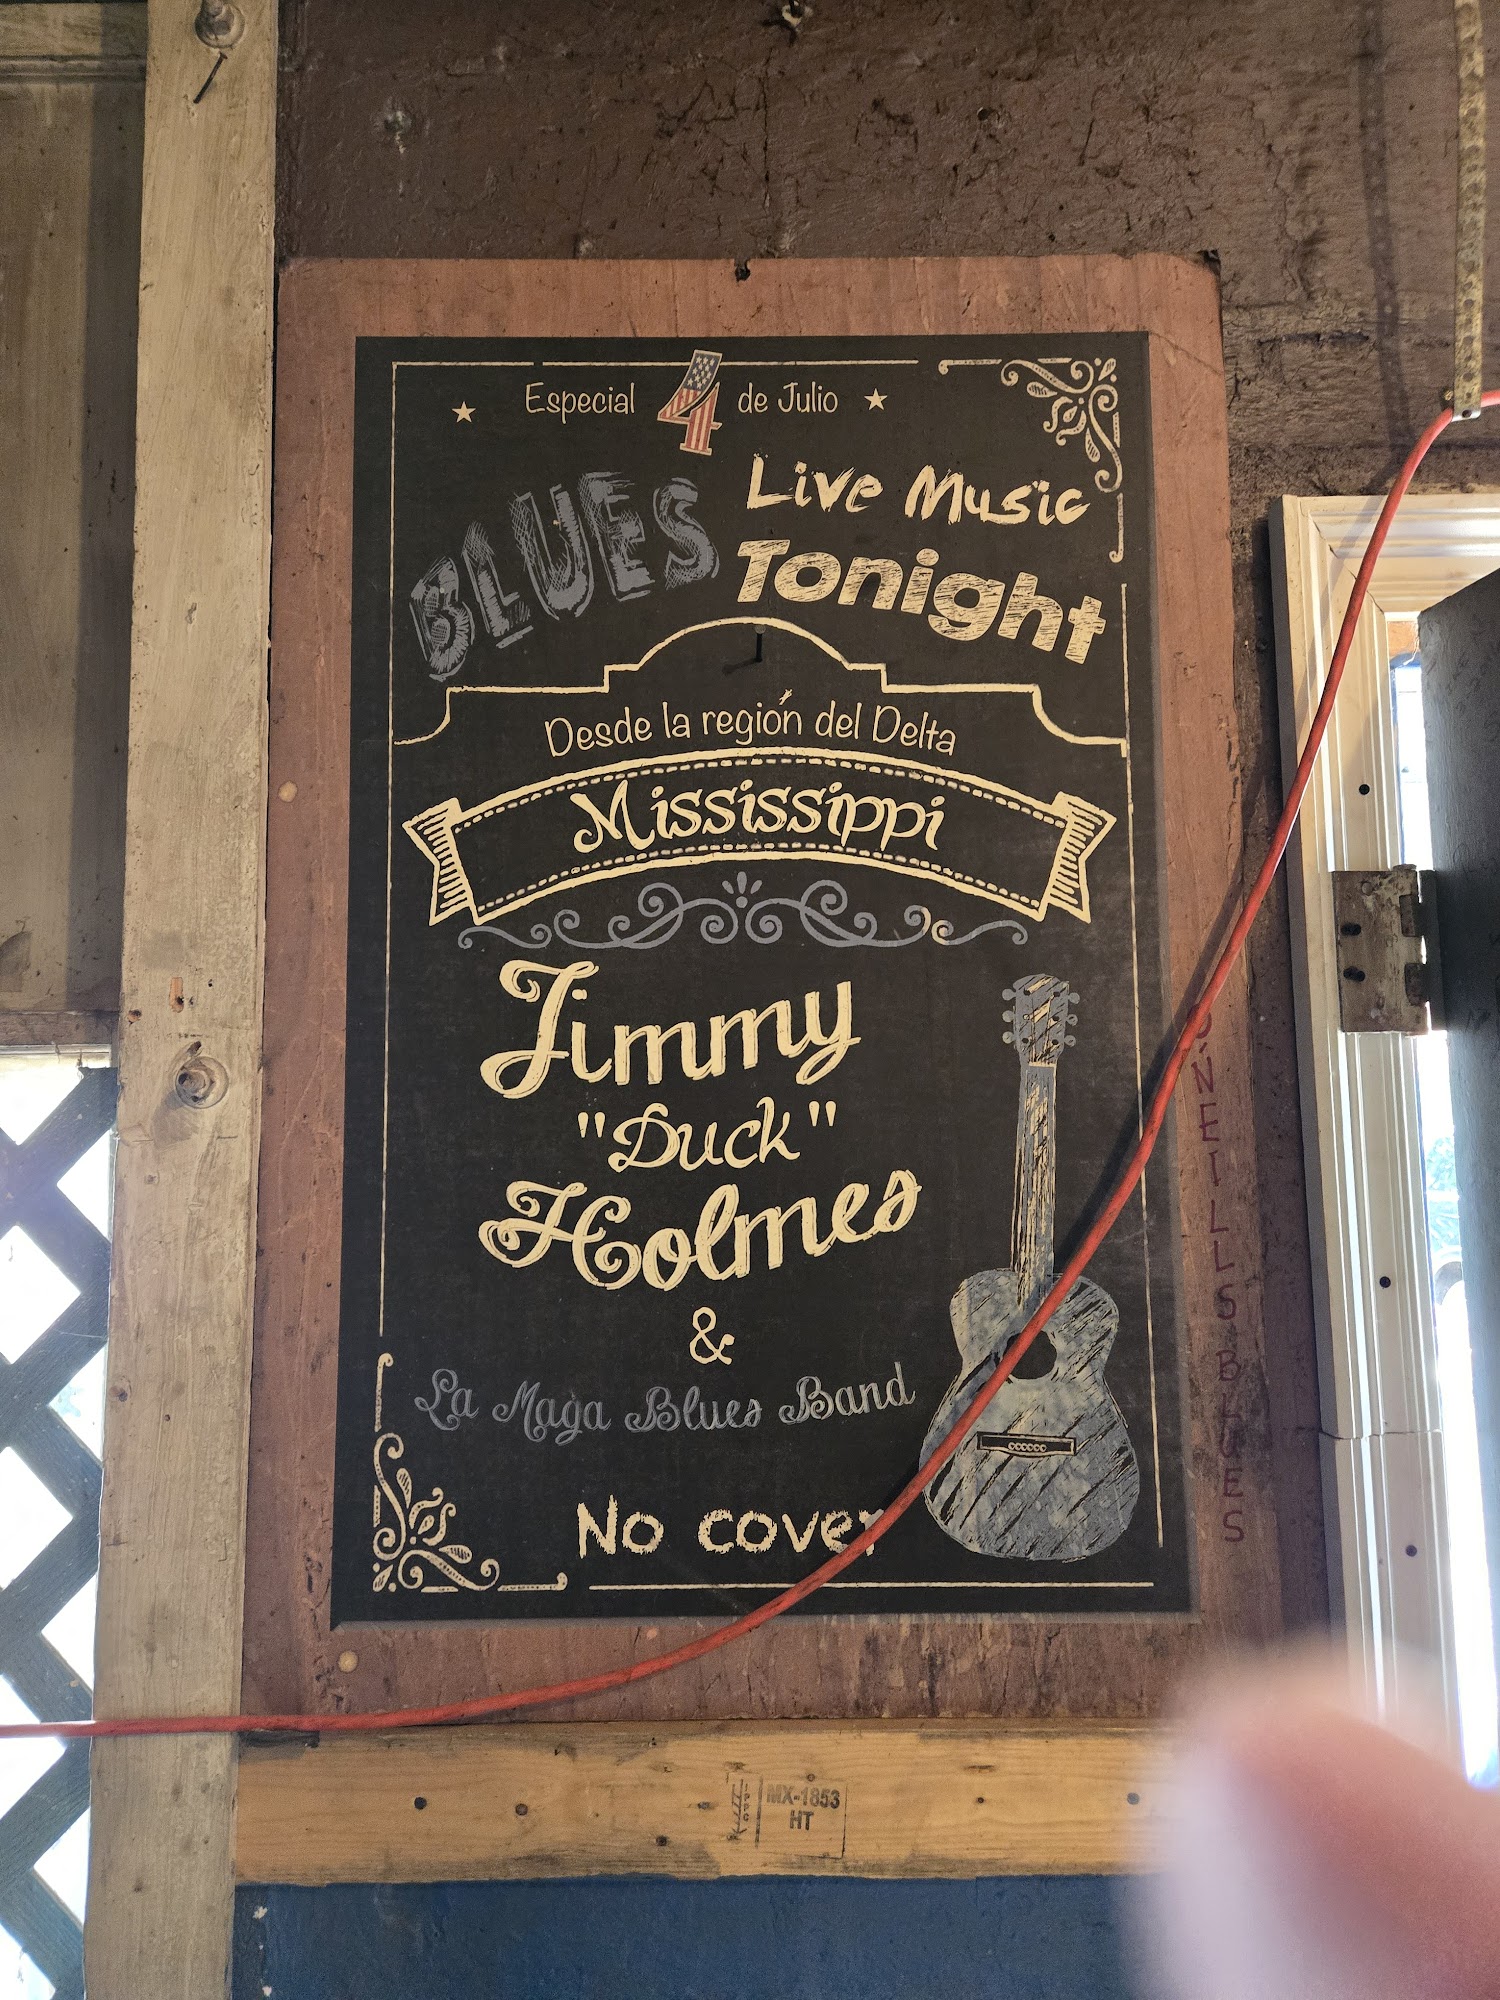 Especial 4 de Julio
BLUES
Live Music
Tonight
Desde la región del Delta
Mississippi
Jimmy
"Duck"
Holmes
&
La Maga Blues Band
No cover
ONEILLS BLUES
IPPC
MX-1853
HT